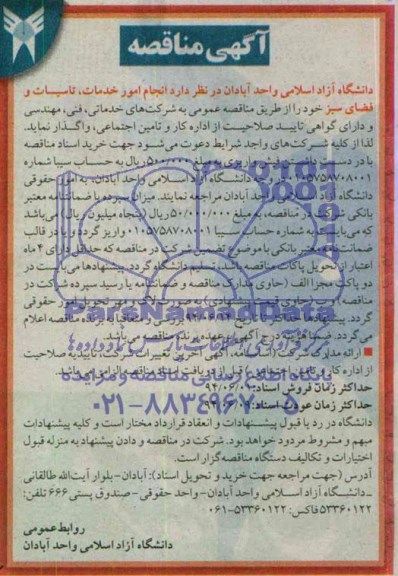 آگهی مناقصه
دانشگاه آزاد اسلامی واحد آبادان در نظر دارد انجام امور خدمات، تاسیسات و
فضای سبز خود را از طریق مناقصه عمومی به شرکت‌های خدماتی، فنی، مهندسی
و دارای گواهی تایید صلاحیت از اداره کار و تامین اجتماعی، واگذار نماید.
لذا از کلیه شرکت‌های واجد شرایط دعوت می‌شود جهت خرید اسناد مناقصه
با در دست داشتن فیش واریزی به مبلغ ۵۰۰/۰۰۰ ریال به حساب سیبا شماره
۰۱۰۵۷۵۸۷۰۸۰۰۱ دانشگاه آزاد اسلامی واحد آبادان، به امور حقوقی
دانشگاه آزاد اسلامی واحد آبادان مراجعه نمایند. میزان سپرده یا ضمانتنامه معتبر
بانکی شرکت در مناقصه، به مبلغ ۵۰/۰۰۰/۰۰۰ ریال (پنجاه میلیون ریال) می‌باشد
که می‌بایست به شماره حساب سیبا ۰۱۰۵۷۵۸۷۰۸۰۰۱ واریز گردد و یا در قالب
ضمانت نامه معتبر بانکی با موضوع تضمین شرکت در مناقصه که حداقل دارای ۴ ماه
اعتبار از تحویل پاکات مناقصه باشد، تسلیم دانشگاه گردد. پیشنهادها می‌بایست در
دو پاکت مجزا الف (حاوی مدارک مناقصه و ضمانتنامه یا رسید سپرده شرکت در
مناقصه) و ب (حاوی قیمت پیشنهادی) به صورت لاک و مهر تحویل امور حقوقی
گردد. پیشنهادها بررسی و متعاقبا برنده مناقصه اعلام
می‌گردد. ضمنا هزینه درج آگهی بر عهده برنده مناقصه می‌باشد.
ارائه مدارک شرکت (اساسنامه، آگهی آخرین تغییرات شرکت، تاییدیه صلاحیت
از اداره کار و تامین اجتماعی) قبل از دریافت اسناد مناقصه الزامی می‌باشد.
حداکثر زمان فروش اسناد: ۹۴/۰۶/۰۱
حداکثر زمان عودت اسناد:
دانشگاه در رد یا قبول پیشنهادات و انعقاد قرارداد مختار است و کلیه پیشنهادات
مبهم و مشروط مردود خواهد بود. شرکت در مناقصه و دادن پیشنهاد به منزله قبول
اختیارات و تکالیف دستگاه مناقصه‌گزار است.
آدرس (جهت مراجعه جهت خرید و تحویل اسناد): آبادان- بلوار آیت‌الله طالقانی
- دانشگاه آزاد اسلامی واحد آبادان- واحد حقوقی- صندوق پستی ۶۶۶ تلفن:
۵۳۳۶۰۱۲۲ فاکس: ۵۳۳۶۰۱۲۲-۰۶۱
روابط عمومی
دانشگاه آزاد اسلامی واحد آبادان
ParsNamadData
پایگاه اطلاع رسانی مناقصه و مزایده
۰۲۱-۸۸۳۴۹۶۷۰-۵